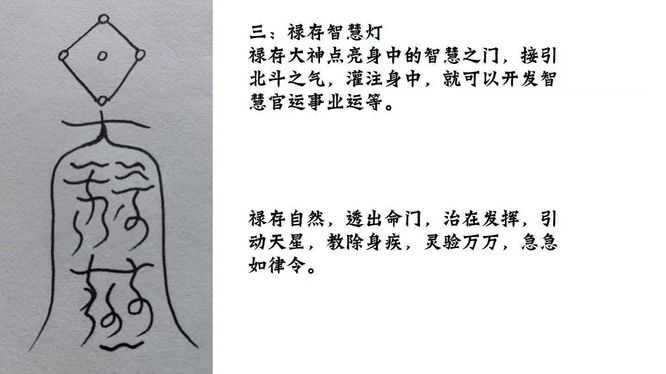 三：禄存智慧灯
禄存大神点亮身中的智慧之门，接引
北斗之气，灌注身中，就可以开发智
慧官运事业运等。
禄存自然，透出命门，治在发挥，引
动天星，教除身疾，灵验万万，急急
如律令。